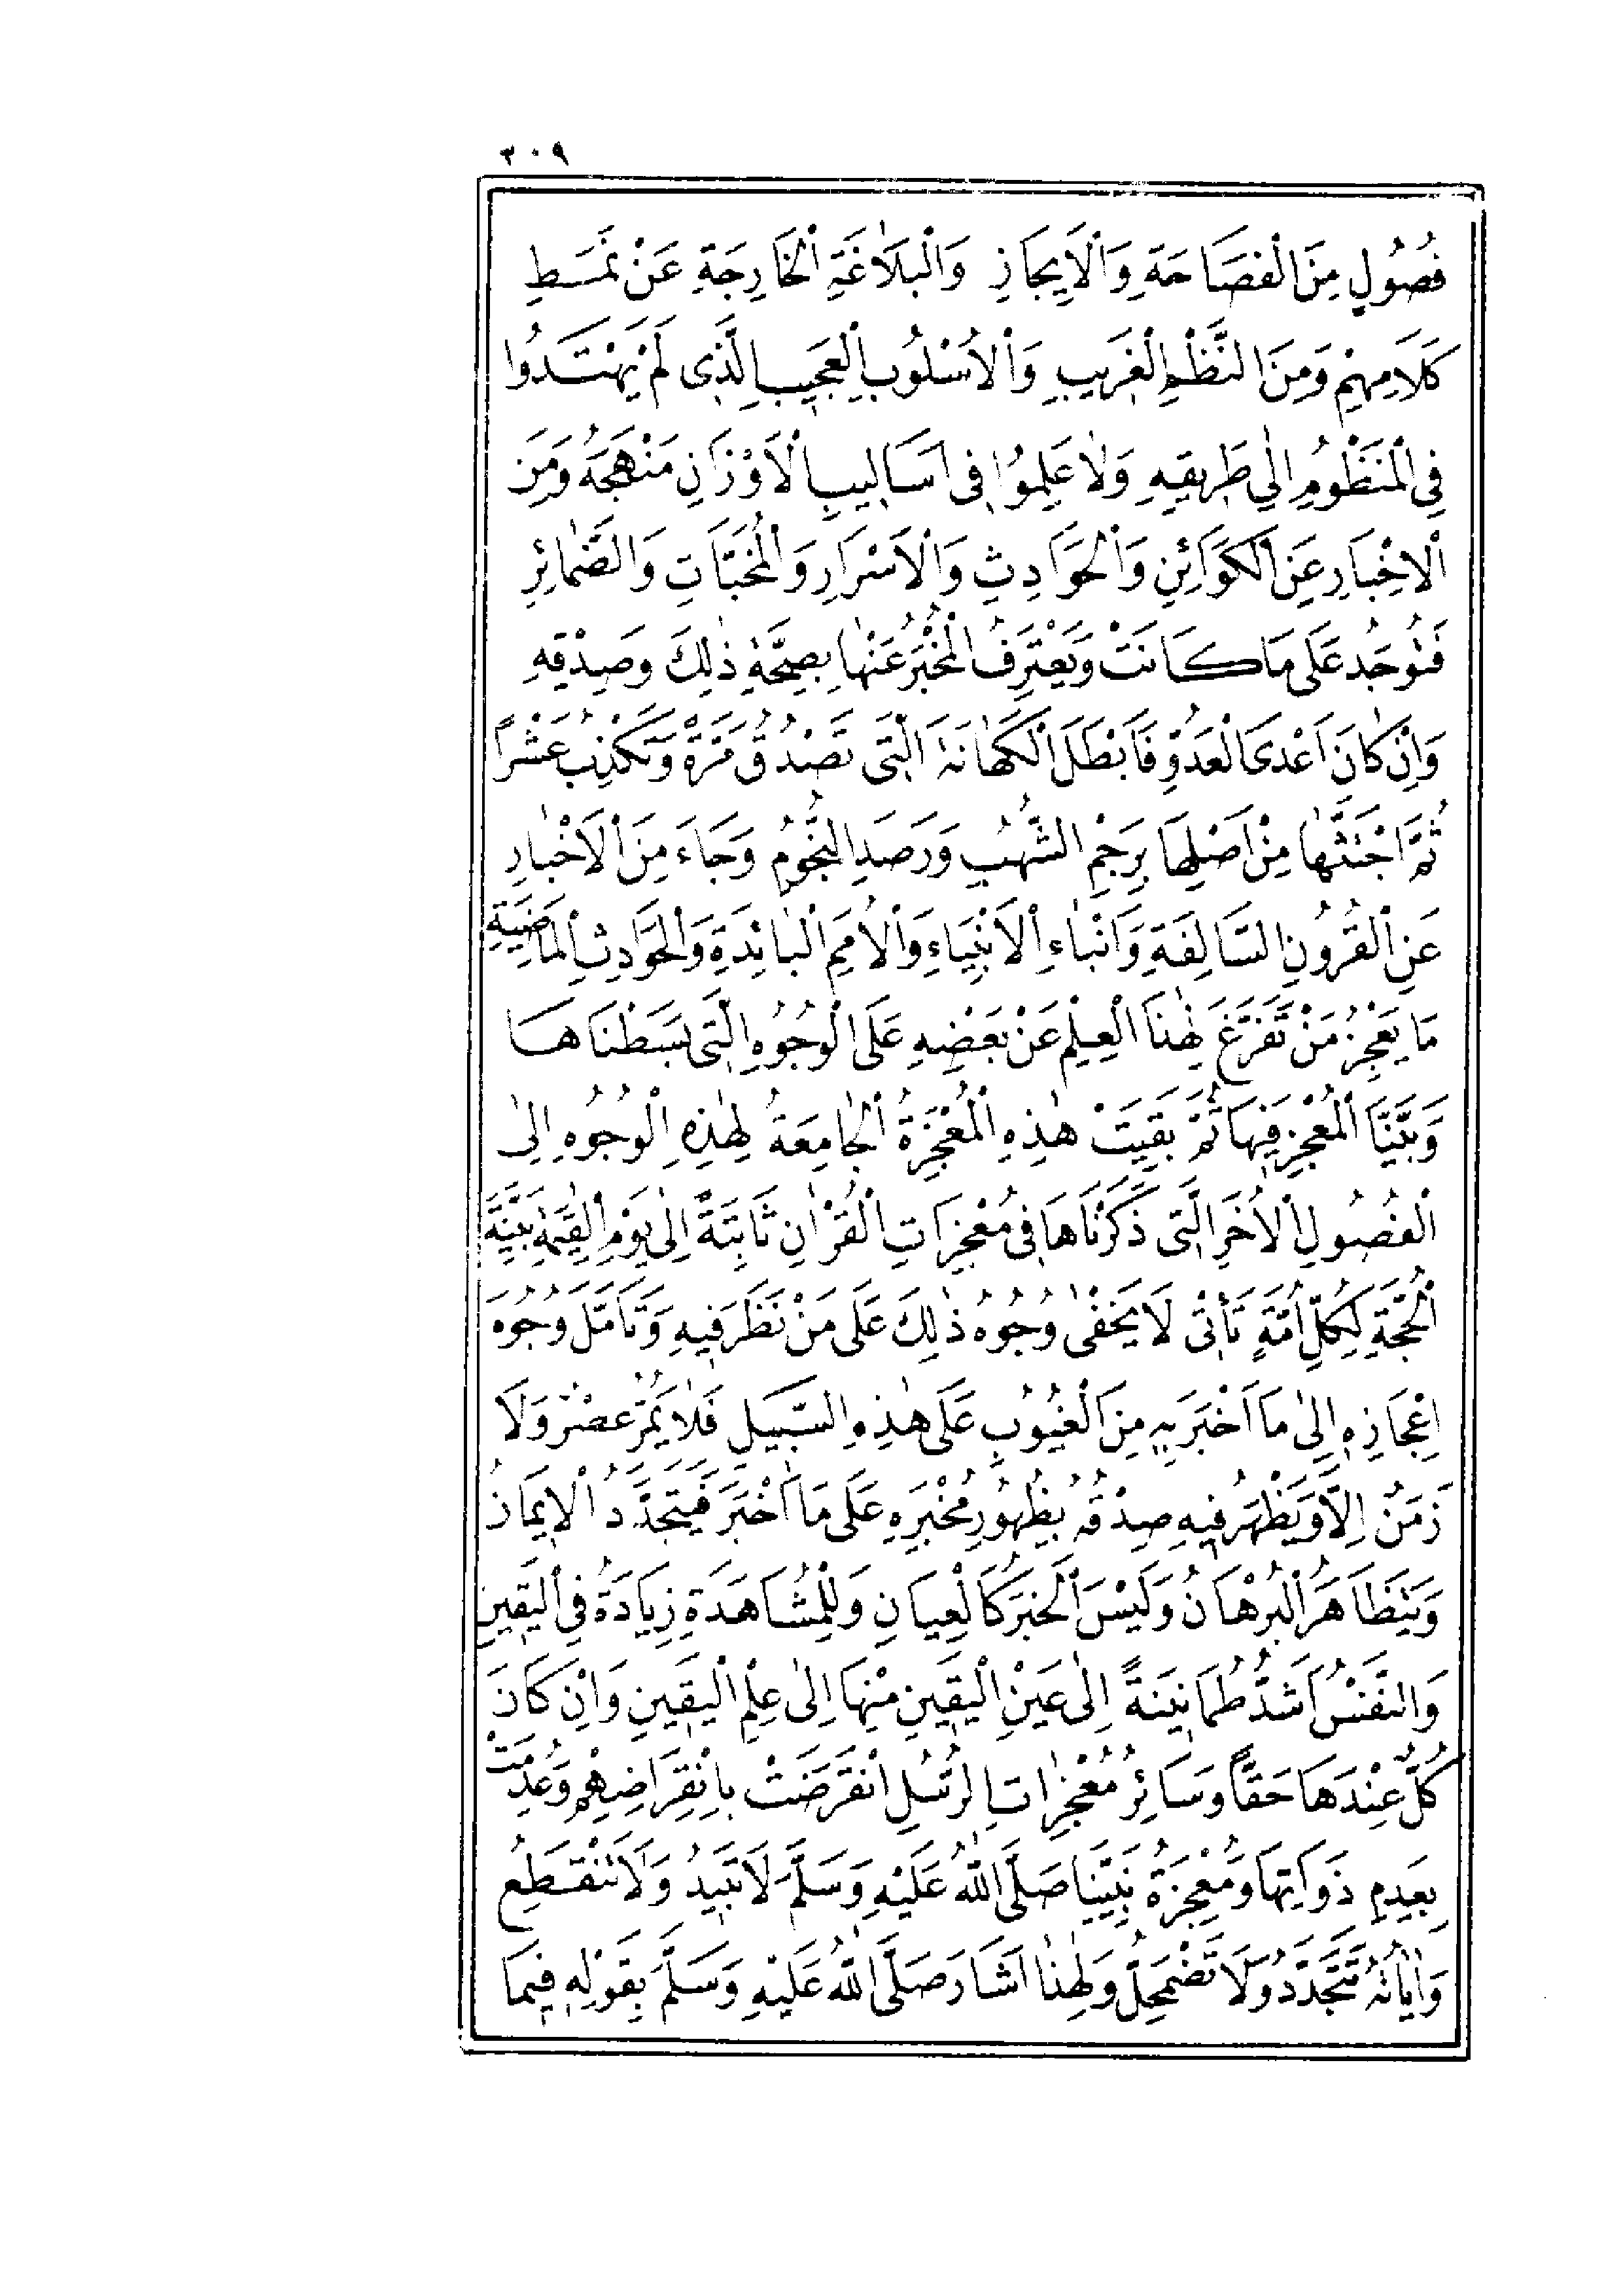 ٣٠٩
فُصُولٍ مِنَ الْفَصَاحَةِ وَالْاِيجَازِ وَالْبَلَاغَةِ الْخَارِجَةِ عَنْ نَمَطِ
كَلَامِهِمْ وَمِنَ النَّظْمِ الْغَرِيبِ وَالْاُسْلُوبِ الْعَجِيبِ الَّذِى لَمْ يَهْتَدُوا
فِى الْمَنْظُومِ اِلٰى طَرِيقِهِ وَلَا عَلِمُوا فِى اَسَالِيبِ الْاَوْزَانِ مَنْهَجَهُ وَمِنَ
الْاِخْبَارِ عَنِ الْكَوَائِنِ وَالْحَوَادِثِ وَالْاَسْرَارِ وَالْمُخَبَّاٰتِ وَالضَّمَائِرِ
فَتُوجَدُ عَلَى مَا كَانَتْ وَيَعْتَرِفُ الْمُخْبَرُ عَنْهَا بِصِحَّةِ ذٰلِكَ وَصِدْقِهِ
وَاِنْ كَانَ اَعْدَى الْعَدُوِّ فَاَبْطَلَ الْكَهَانَةَ الَّتِى تَصْدُقُ مَرَّةً وَتَكْذِبُ عَشْرًا
ثُمَّ اجْتَثَّهَا مِنْ اَصْلِهَا بِرَجْمِ الشُّهُبِ وَرَصَدِ النُّجُومِ وَجَاءَ مِنَ الْاَخْبَارِ
عَنِ الْقُرُونِ السَّالِفَةِ وَاَنْبَاءِ الْاَنْبِيَاءِ وَالْاُمَمِ الْبَائِدَةِ وَالْحَوَادِثِ الْمَاضِيَةِ
مَا يَعْجِزُ مَنْ تَفَرَّغَ لِهٰذَا الْعِلْمِ عَنْ بَعْضِهِ عَلَى الْوُجُوهِ الَّتِى بَسَطْنَاهَا
وَبَيَّنَّا الْمُعْجِزَ فِيهَا ثُمَّ بَقِيَتْ هٰذِهِ الْمُعْجِزَةُ الْجَامِعَةُ لِهٰذِهِ الْوُجُوهِ اِلَى
الْفُصُولِ الْاُخَرِ الَّتِى ذَكَرْنَاهَا فِى مُعْجِزَاتِ الْقُرْاٰنِ ثَابِتَةً اِلٰى يَوْمِ الْقِيٰمَةِ بَيِّنَةَ
الْحُجَّةِ لِكُلِّ اُمَّةٍ تَأْتِى لَا يَخْفٰى وُجُوهُ ذٰلِكَ عَلَى مَنْ نَظَرَ فِيهِ وَتَاَمَّلَ وُجُوهَ
اِعْجَازِهِ اِلٰى مَا اَخْبَرَ بِهِ مِنَ الْغُيُوبِ عَلَى هٰذِهِ السَّبِيلِ فَلَا يَمُرُّ عَصْرٌ وَلَا
زَمَنٌ اِلَّا وَيَظْهَرُ فِيهِ صِدْقُهُ بِظُهُورِ مُخْبَرِهِ عَلَى مَا اَخْبَرَ فَيَتَجَدَّدُ الْاِيمَانُ
وَيَتَظَاهَرُ الْبُرْهَانُ وَلَيْسَ الْخَبَرُ كَالْعِيَانِ وَلِلْمُشَاهَدَةِ زِيَادَةٌ فِى الْيَقِينِ
وَالنَّفْسُ اَشَدُّ طُمَانِينَةً اِلٰى عَيْنِ الْيَقِينِ مِنْهَا اِلٰى عِلْمِ الْيَقِينِ وَاِنْ كَانَ
كُلٌّ عِنْدَهَا حَقًّا وَسَائِرُ مُعْجِزَاتِ الرُّسُلِ انْقَرَضَتْ بِانْقِرَاضِهِمْ وَعُدِمَتْ
بِعَدَمِ ذَوَاتِهَا وَمُعْجِزَةُ نَبِيِّنَا صَلَّى اللّٰهُ عَلَيْهِ وَسَلَّمَ لَا تَبِيدُ وَلَا تَنْقَطِعُ
وَاٰيَاتُهُ تَتَجَدَّدُ وَلَا تَضْمَحِلُّ وَلِهٰذَا اَشَارَ صَلَّى اللّٰهُ عَلَيْهِ وَسَلَّمَ بِقَوْلِهِ فِيمَا